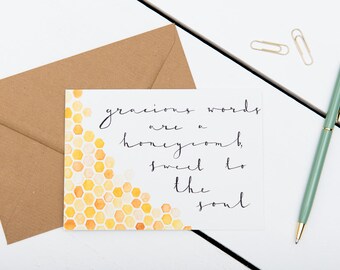 gracious words
are a
honeycomb,
sweet to
the
soul